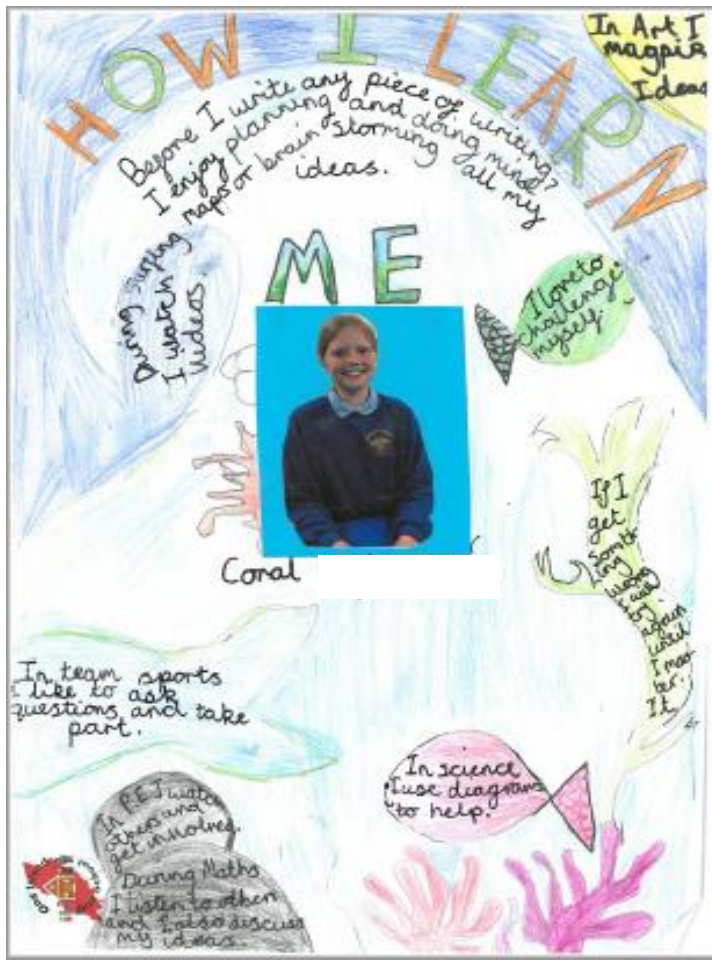 HOW I LEARN
In Art I
magpie
Ideas
Before I write any piece of writing?
I enjoy planning and doing mind
maps or brain storming all my
ideas.
ME
During surfing
I watch
videos.
I love to
challenge
myself.
If I
get
someth
ing
wrong
I will
try
again
until
I mas
ter.
It
Coral
In team sports
I like to ask
questions and take
part.
In science
I use diagrams
to help.
In P.E I watch
others and
get involved.
During Maths
I listen to others
and I also discuss
my ideas.